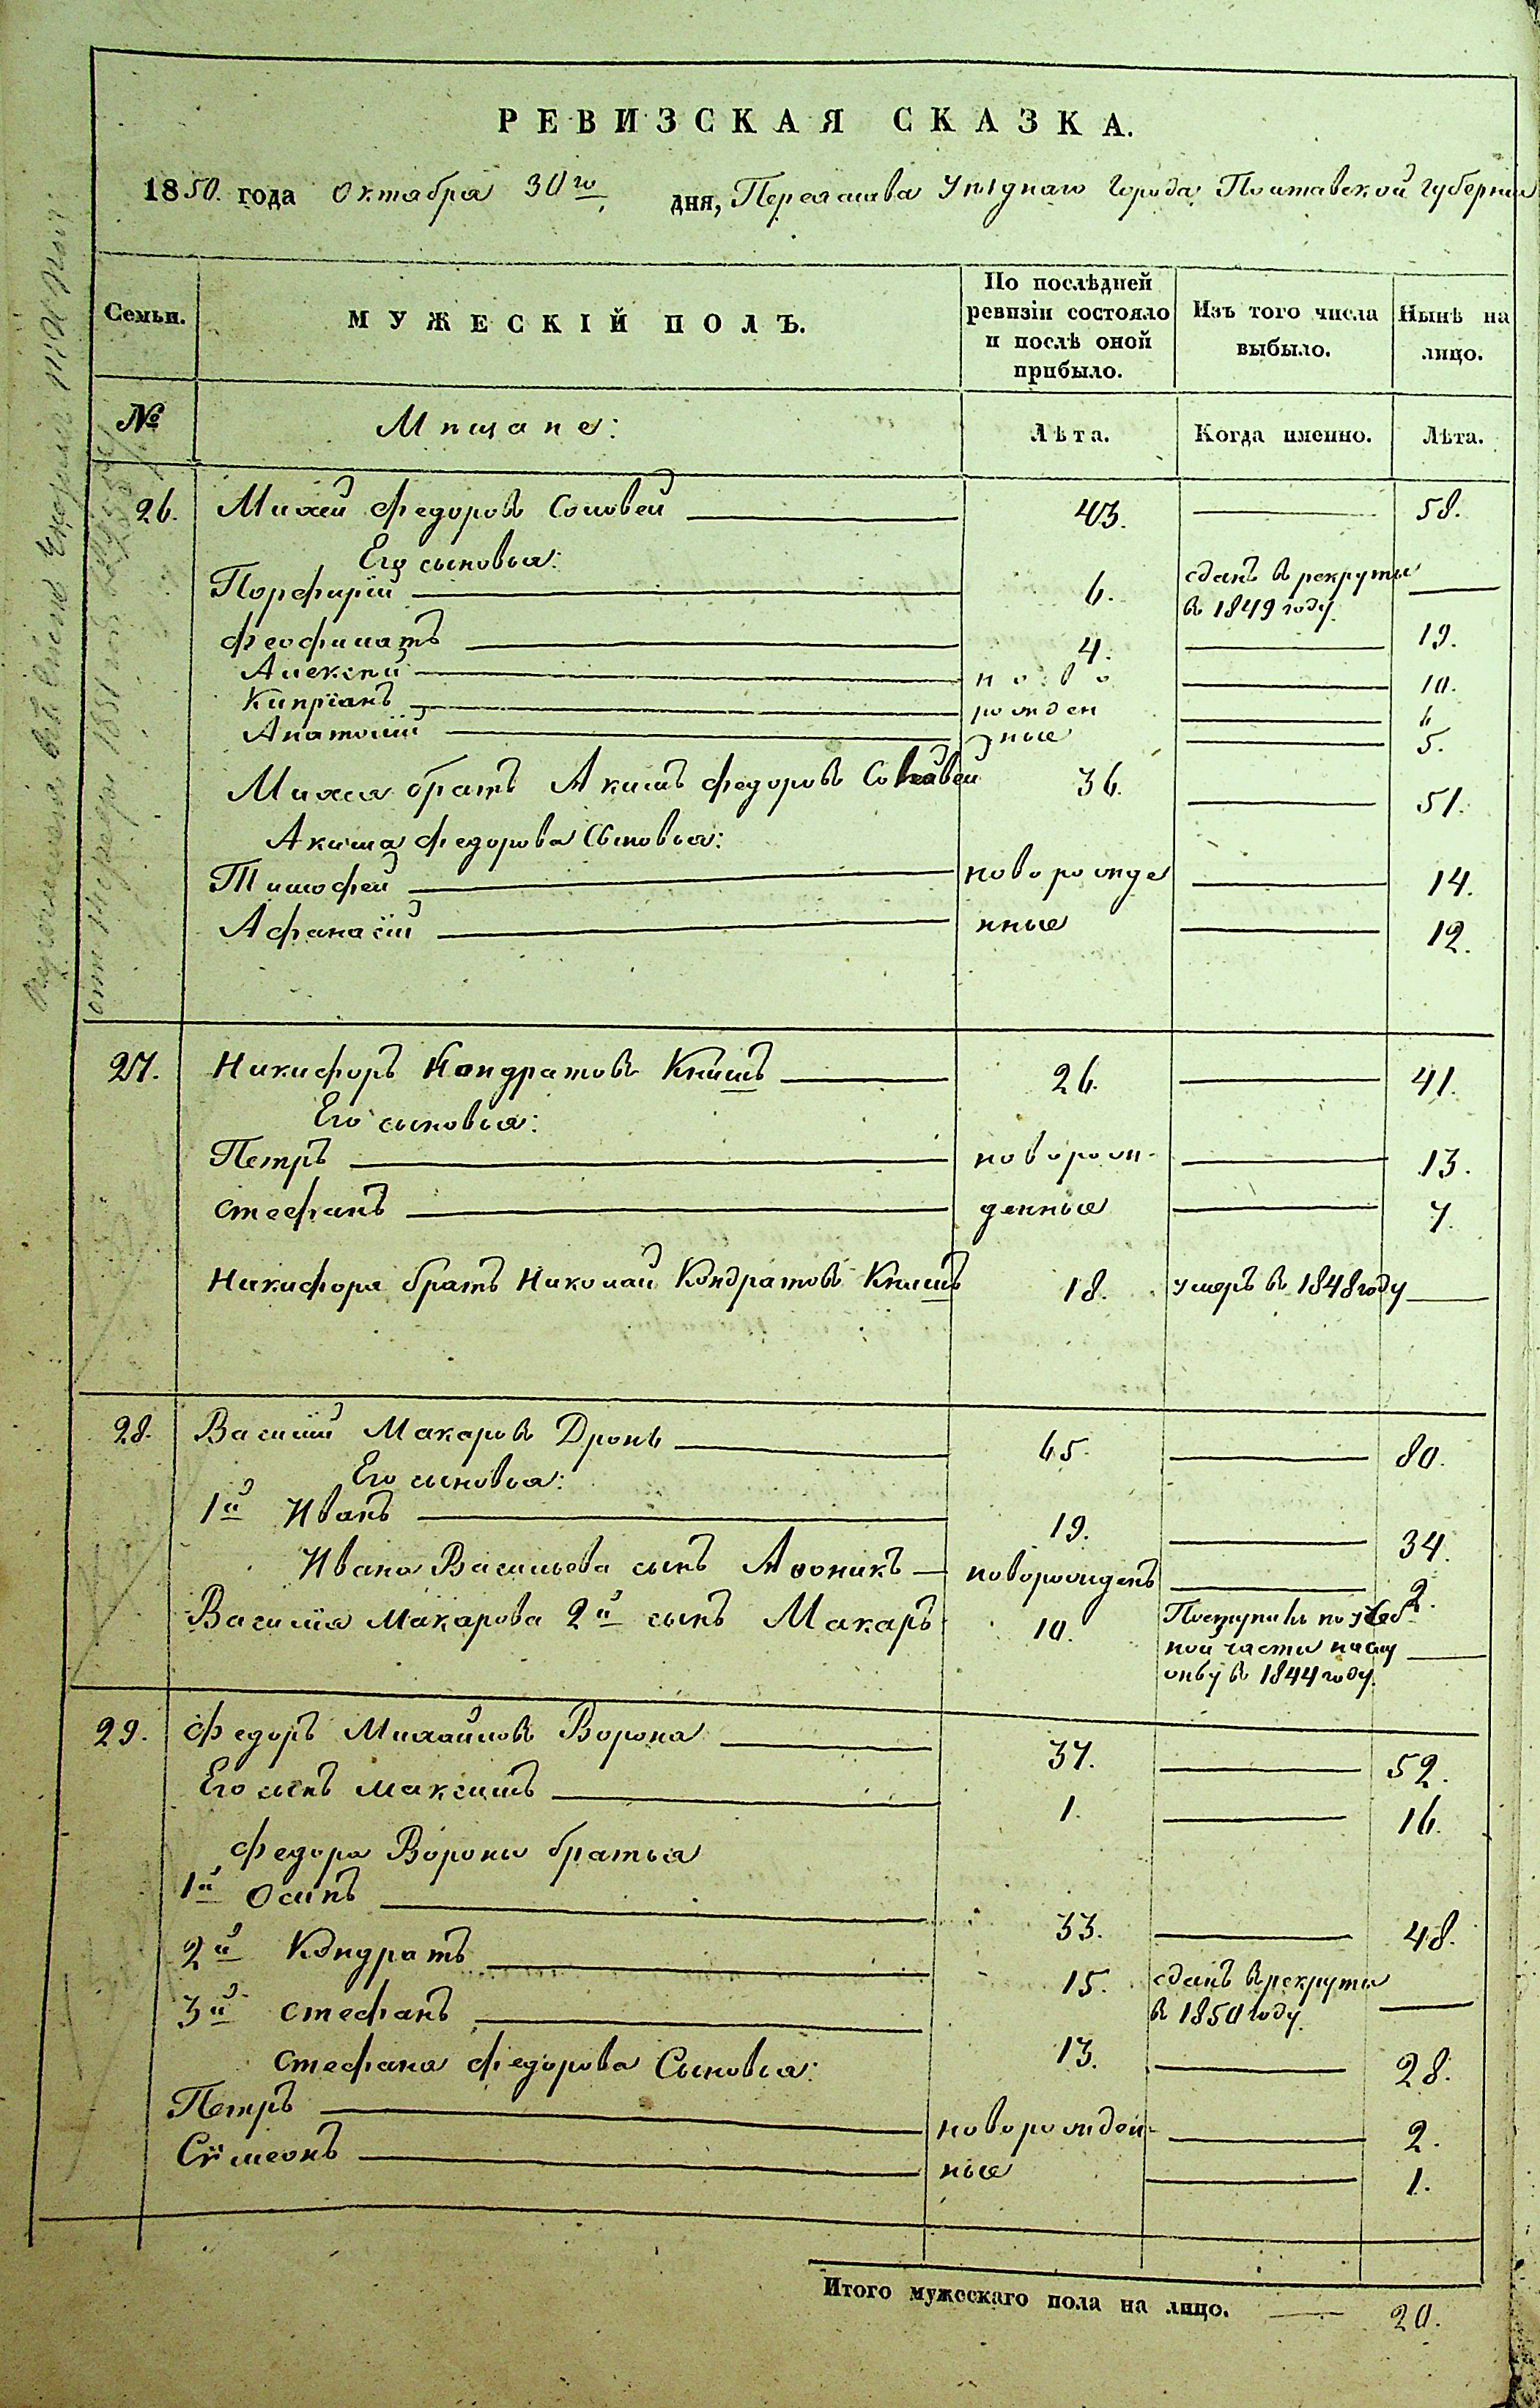 РЕВИЗСКАЯ СКАЗКА.
1850. года Октября 30го дня, Переяслава Уѣзднаго Города Полтавской Губерніи
Семьи. МУЖЕСКІЙ ПОЛЪ. По послѣдней ревизіи состояло и послѣ оной прибыло. Изъ того числа выбыло. Нынѣ на лицо.
№ Мѣщане: Лѣта. Когда именно. Лѣта.
26. Михей Федоровъ Соловей 43. 58.
Его сыновья:
Порфирій 6. сданъ в рекруты в 1849 году.
Феофилатъ 4. 19.
Алексѣй ново 10.
Кипріанъ рожден 6
Анатолій ные 5.
Михея братъ Акимъ Федоровъ Соловей 36. 51.
Акима Федорова Сыновья:
Тимофей новорожде 14.
Афанасій нные 12.
27. Никифоръ Кондратовъ Книшъ 26. 41.
Его сыновья:
Петръ новорож- 13.
Стефанъ денные 7.
Никифора братъ Николай Кондратовъ Книшъ 18. умеръ в 1848 году
28. Василій Макаровъ Дронь 65. 80.
Его сыновья:
1й Иванъ 19. 34.
Ивана Васильева сынъ Аѳоникъ новорожденъ 2.
Василія Макарова 2й сынъ Макаръ 10. Поступилъ по
ной части
в 1844 году.
29. Федоръ Михайловъ Ворона 37. 52.
Его сынъ Максимъ 1. 16.
Федора Вороны братья
1й Осипъ 33. 48.
2й Кондратъ 15. сданъ в рекруты в 1850 году.
3й Стефанъ 13. 28.
Стефана Федорова Сыновья:
Петръ новорожден- 2.
Сѵмеонъ ные 1.
Итого мужескаго пола на лицо. 20.